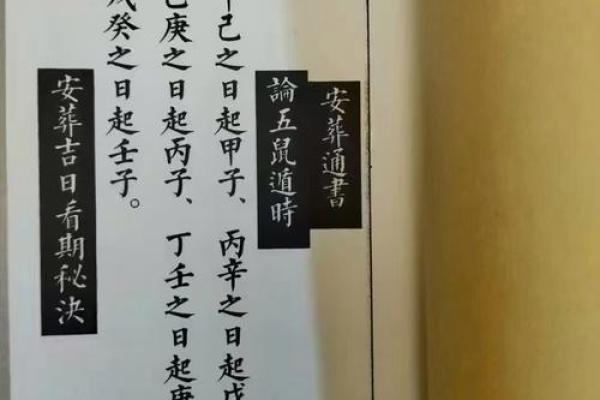 安葬通書
論五鼠遁時
己之日起甲子、丙辛之日起戊
庚之日起丙子、丁壬之日起庚
癸之日起壬子。
安葬吉日看期秘決